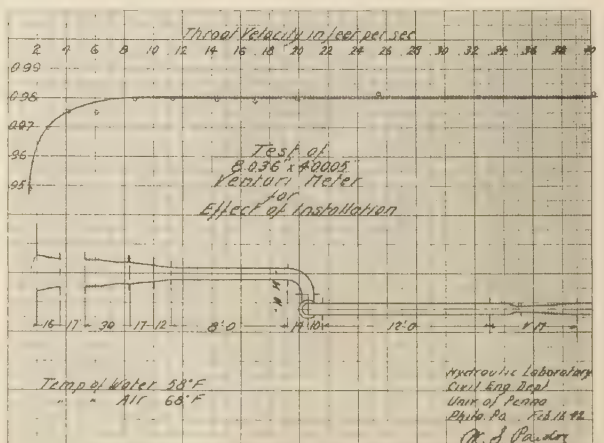 Throat Velocity in feet per sec
2 4 6 8 10 12 14 16 18 20 22 24 26 28 30 32 34 36 38 40
0.99
0.98
0.97
.96
.95
Test of
8.036" x 4.0005"
Venturi Meter
for
Effect of Installation
16 17 30 17 12 8'0 12'0
Temp of Water 58°F
" " Air 68°F
Hydraulic Laboratory
Civil Eng Dept
Univ. of Penna
Phila. Pa. Feb. 18 42